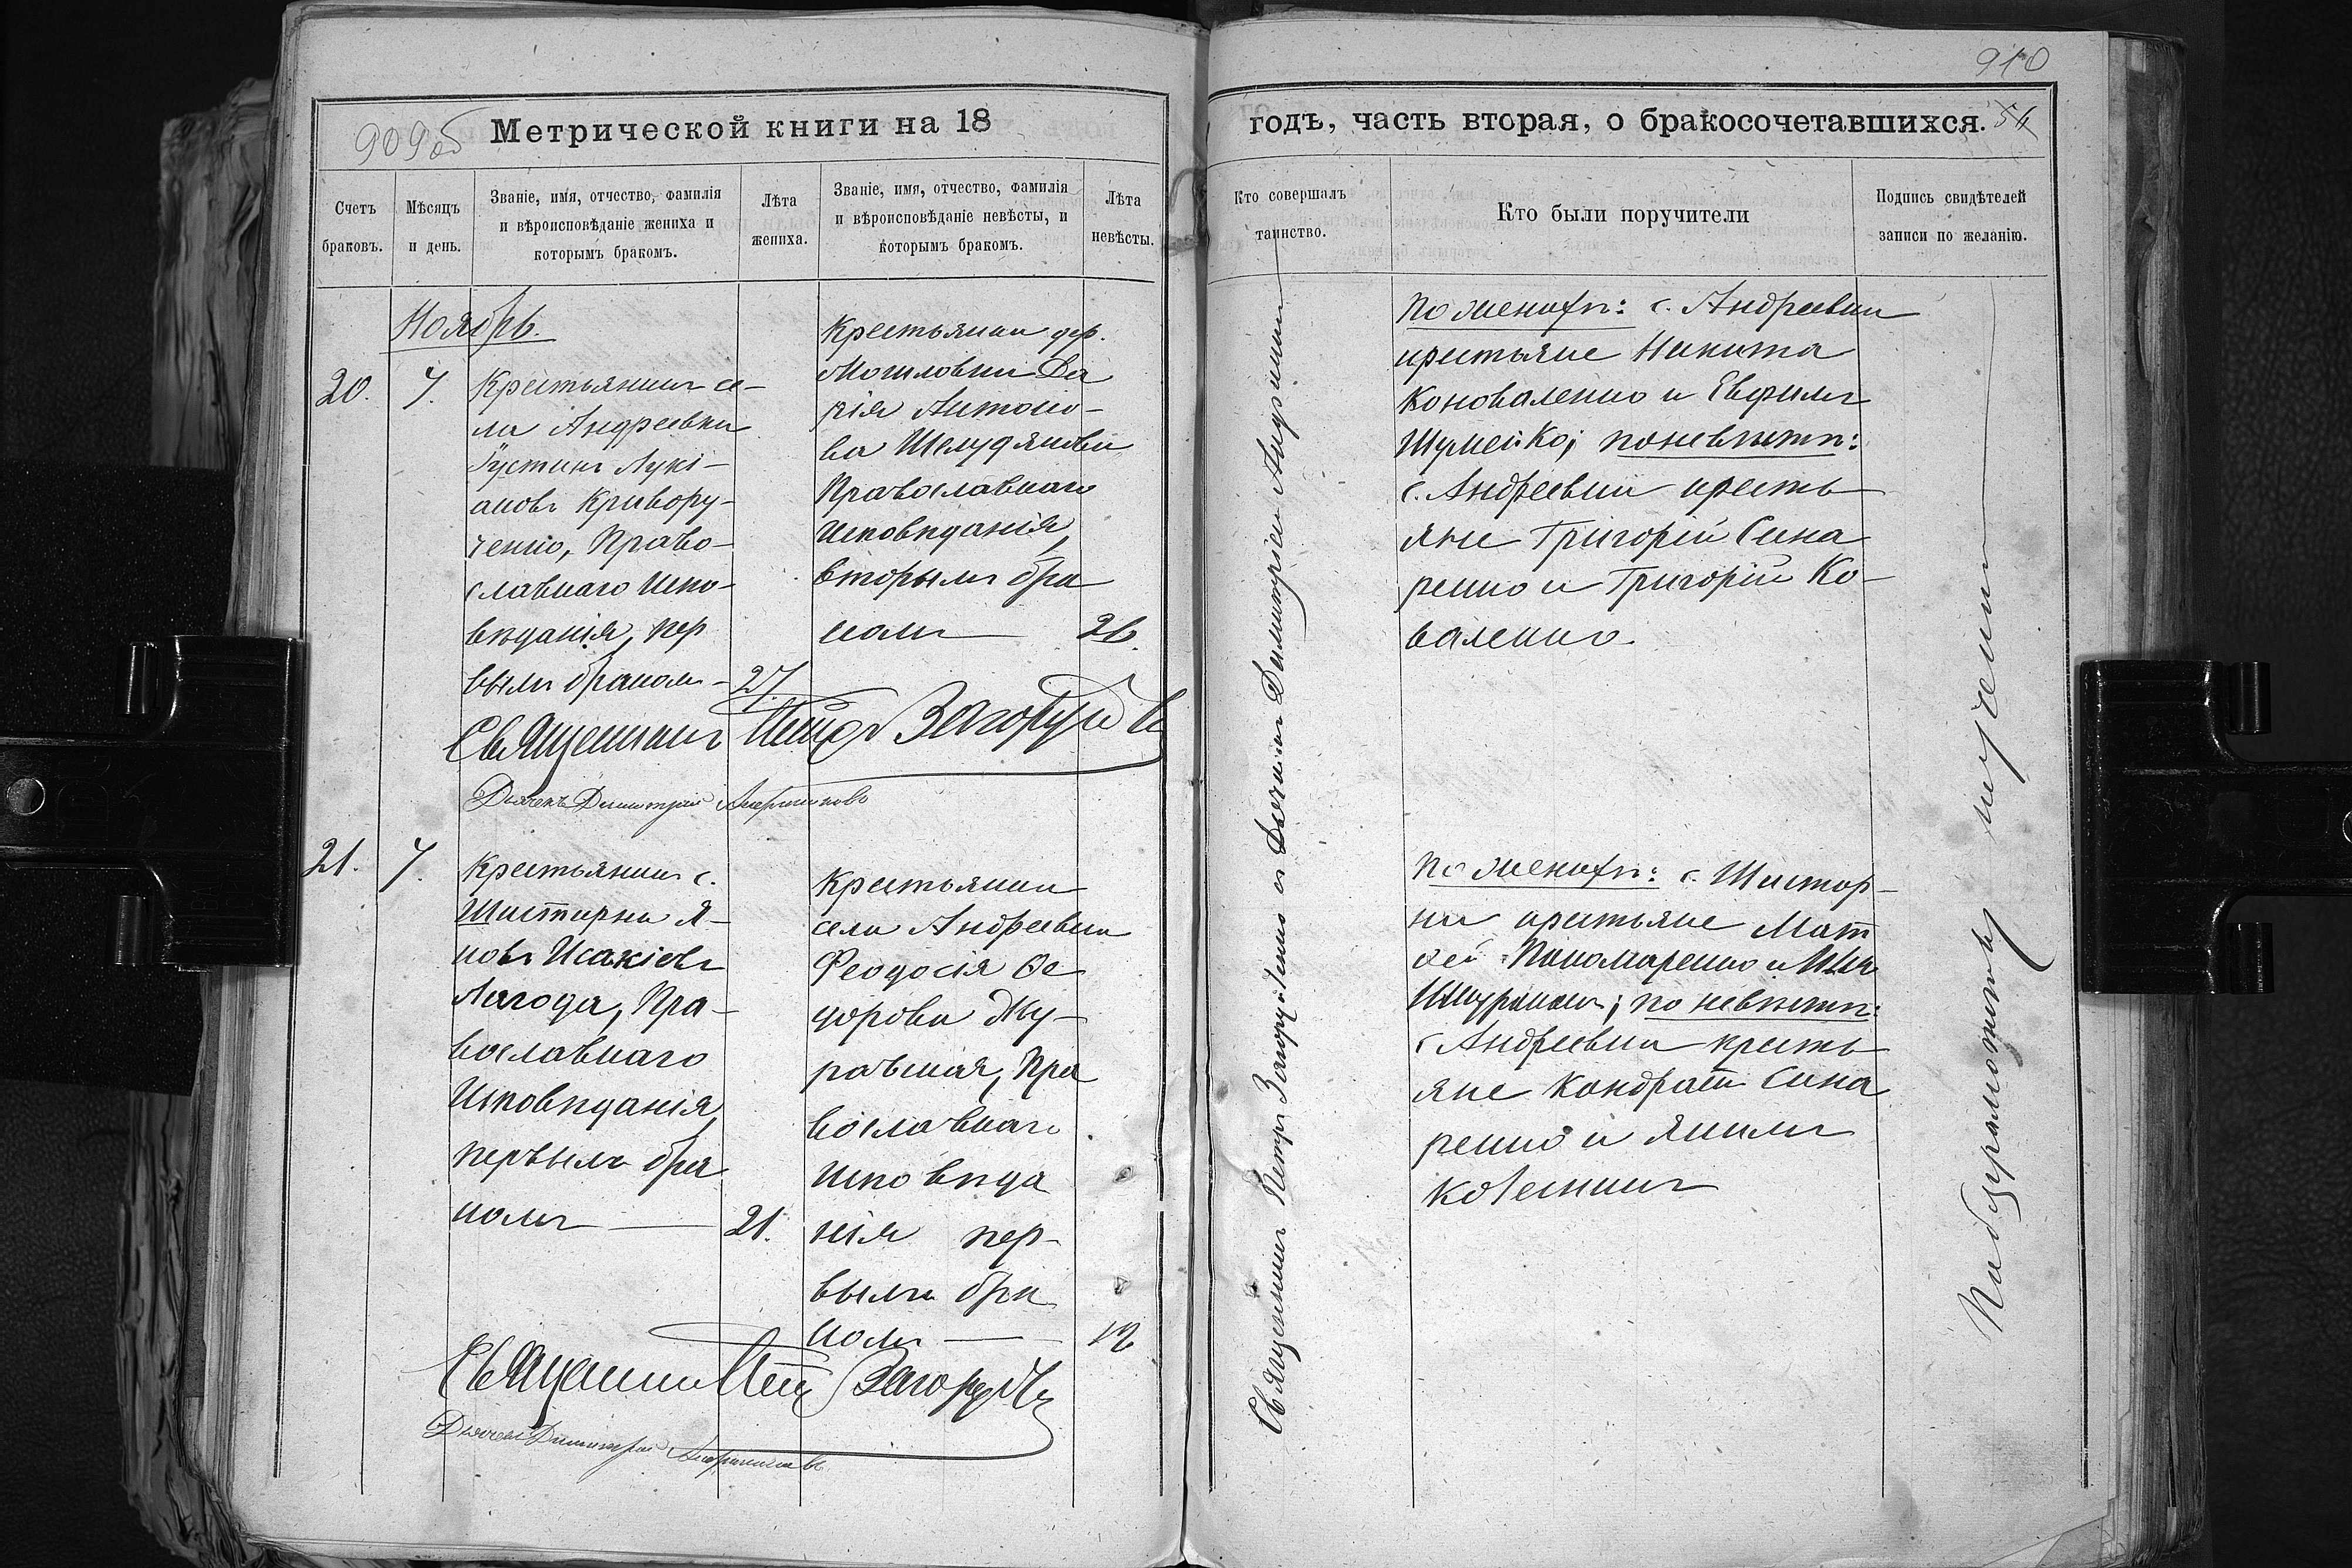 909об
Метрической книги на 18
Счетъ браковъ.
Мѣсяцъ и день.
Званіе, имя, отчество, фамилія
и вѣроисповѣданіе жениха и
которымъ бракомъ.
Лѣта жениха.
Званіе, имя, отчество, фамилія
и вѣроисповѣданіе невѣсты, и
которымъ бракомъ.
Лѣта невѣсты.
Ноябрь.
20.
7.
Крестьянинъ се-
ла Андреевки
Іустинъ Лукі-
ановъ Кривору-
ченко, Право-
славнаго Испо-
вѣданія, пер
вымъ бракомъ - 27.
Крестьянка дер.
Могиловки Да
рія Антоно-
ва
Православнаго
Исповѣданія,
вторымъ бра
комъ — 26.
Священникъ Петръ
Дьячекъ Димитрій
21.
7.
Крестьянинъ с.
Я-
ковъ Исакіевъ
Лагода, Пра-
вославнаго
Исповѣданія,
первымъ бра
комъ — 21.
Крестьянка
села Андреевки
Феодосія Ѳе
дорова Жу-
равская, Пра
вославнаго
Исповѣда
нія пер-
вымъ бра
комъ —
Священникъ Петръ
Дьячекъ Димитрій
910
годъ, часть вторая, о бракосочетавшихся. 54
Кто совершалъ таинство.
Кто были поручители
Подпись свидѣтелей
записи по желанію.
Священникъ Петръ съ Дьячкомъ Димитріемъ
По женихѣ: с. Андреевки
крестьяне Никита
Коноваленко и Евфимъ
Шумейко; по невѣстѣ:
с. Андреевки кресть
яне Григорій Сина
ренко и Григорій Ко-
валенко.
По женихѣ:
крестьяне Мат
ѳей Пономаренко и
по невѣстѣ:
с Андреевки кресть
яне Кондратъ Сина
ренко и Якимъ
неграмотны